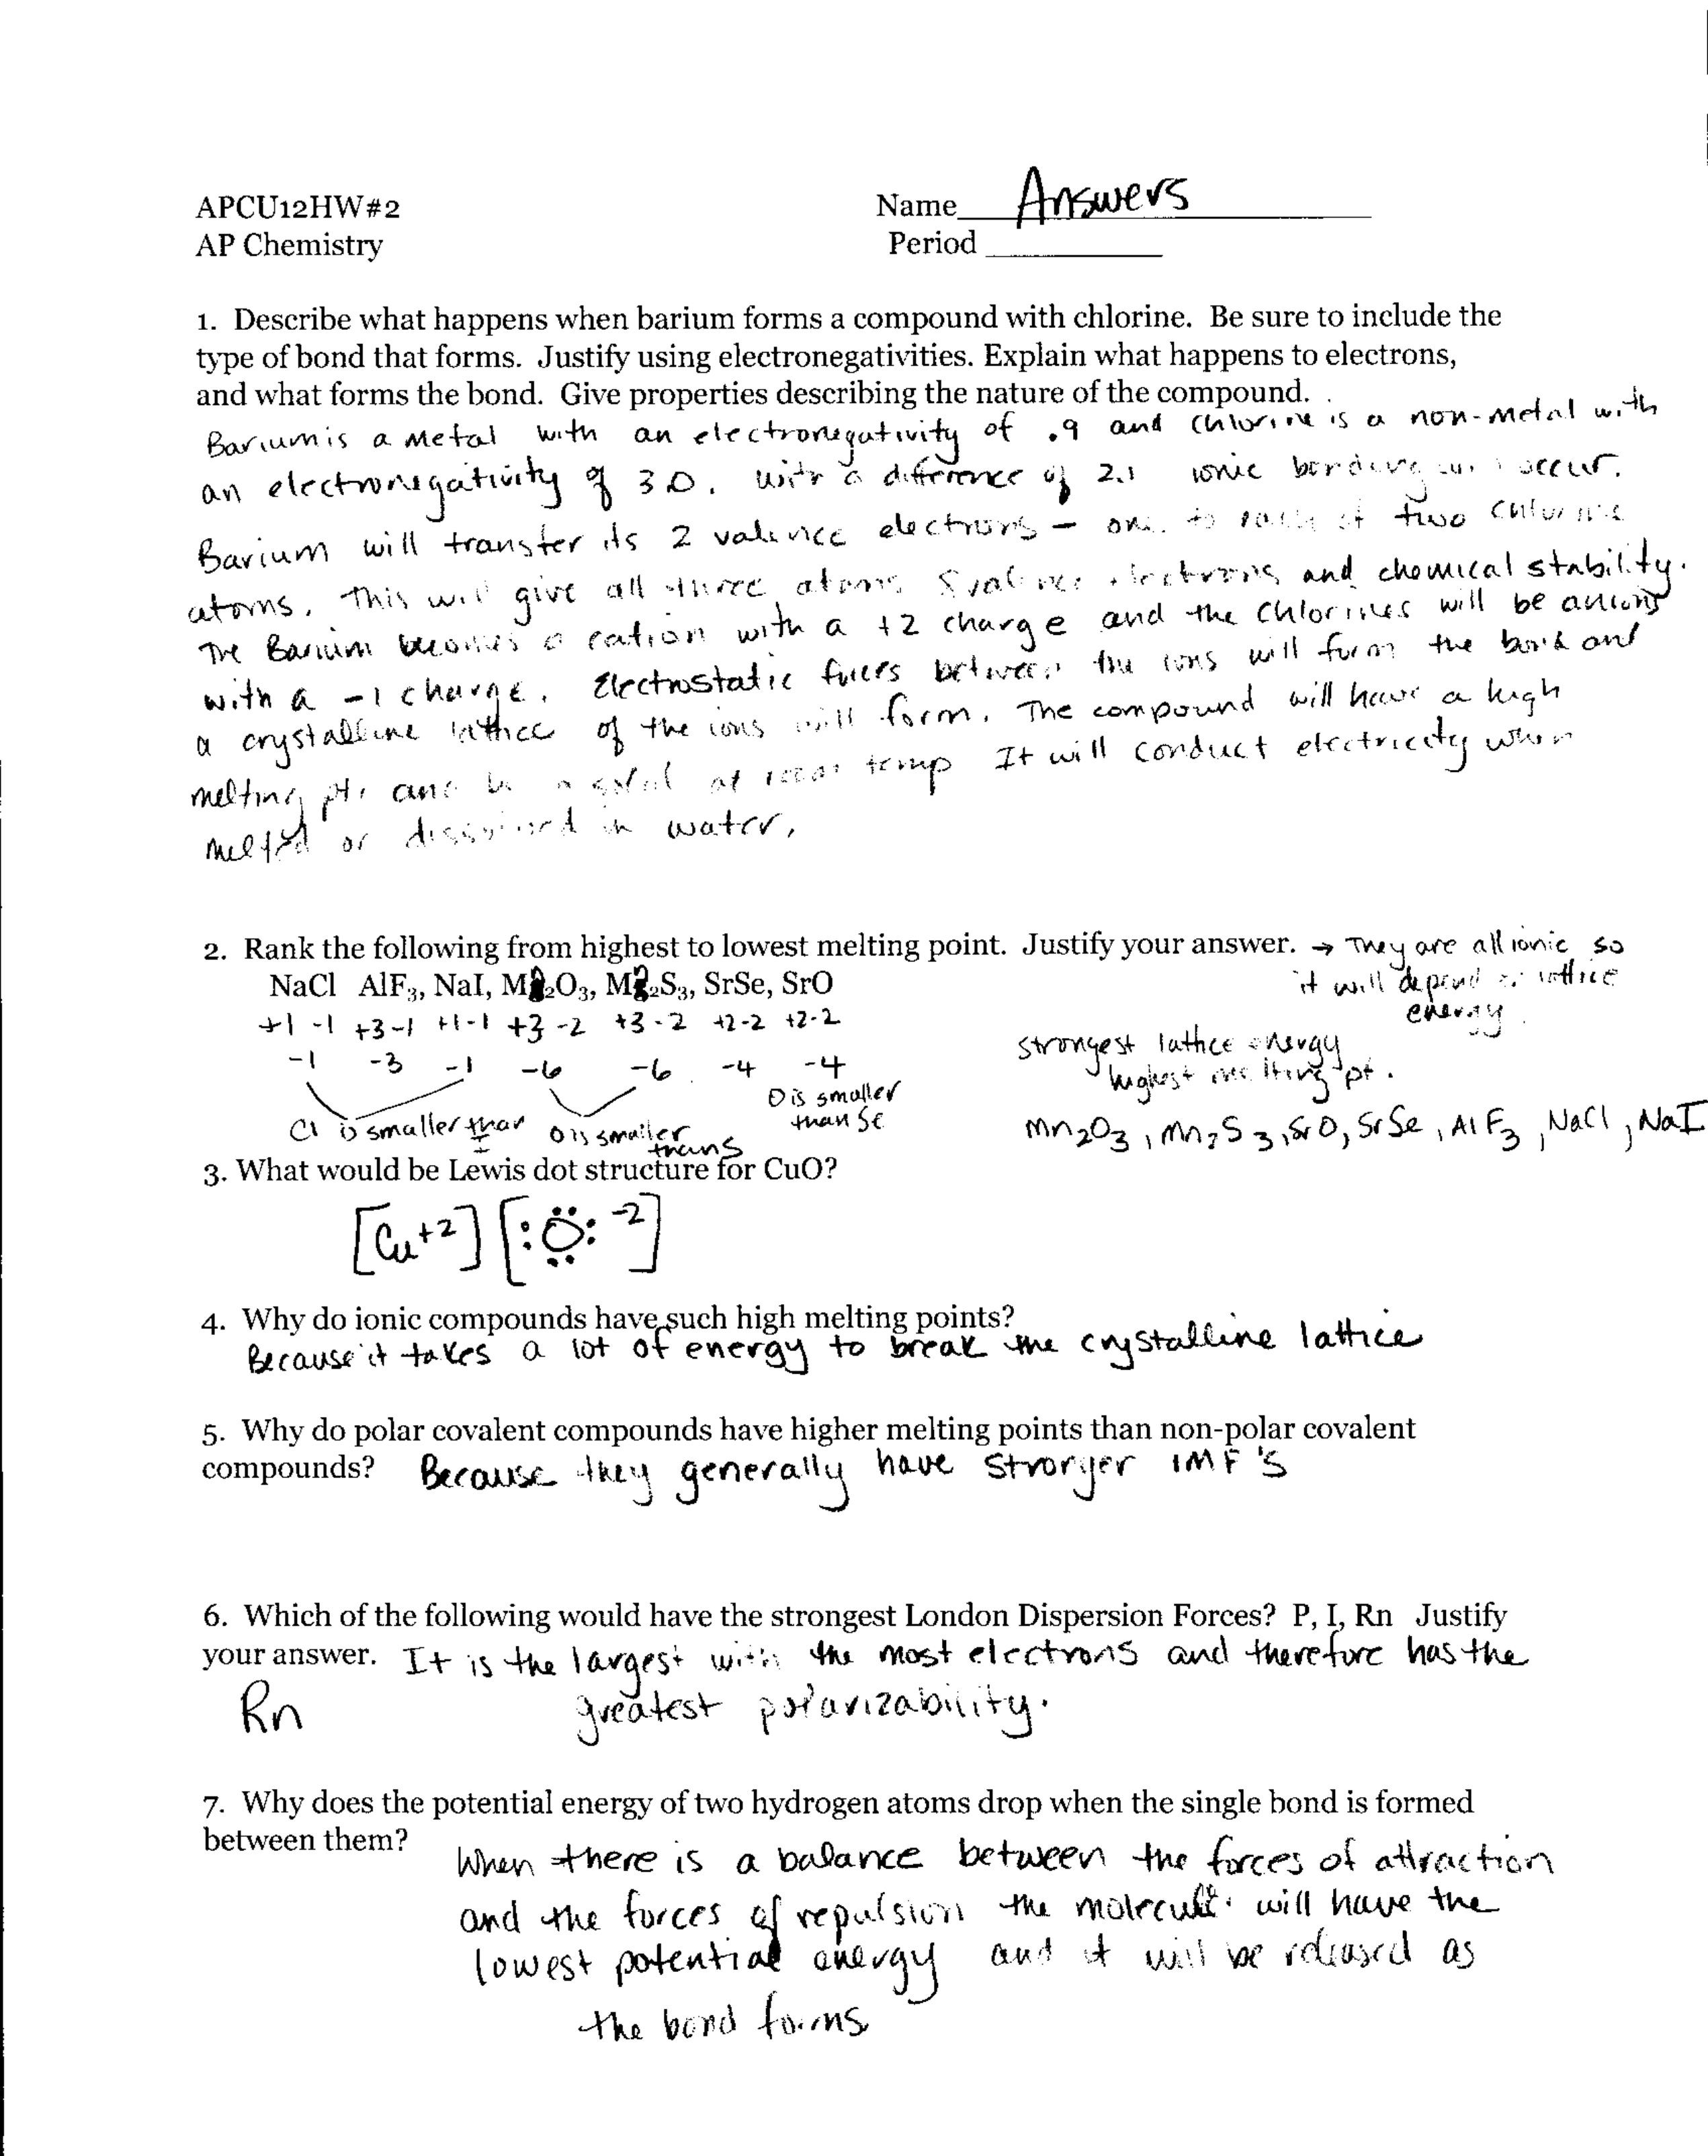 APCU12HW#2 Name Answers
AP Chemistry Period
1. Describe what happens when barium forms a compound with chlorine. Be sure to include the
type of bond that forms. Justify using electronegativities. Explain what happens to electrons,
and what forms the bond. Give properties describing the nature of the compound.
Barium is a metal with an electronegativity of .9 and chlorine is a non-metal with
an electronegativity of 3.0. with a difference of 2.1 ionic bonding will occur.
Barium will transfer its 2 valence electrons - one to each of two chlorine
atoms. This will give all three atoms 8 valence electrons and chemical stability.
The Barium becomes a cation with a +2 charge and the chlorines will be anions
with a -1 charge. Electrostatic forces between the ions will form the bond and
a crystalline lattice of the ions will form. The compound will have a high
melting pt. and be a solid at room temp It will conduct electricity when
melted or dissolved in water.
2. Rank the following from highest to lowest melting point. Justify your answer. → They are all ionic so
it will depend on lattice
energy
NaCl AlF₃, NaI, Mn₂O₃, Mn₂S₃, SrSe, SrO
+1 -1 +3 -1 +1 -1 +3 -2 +3 -2 +2 -2 +2 -2
-1 -3 -1 -6 -6 -4 -4
Cl is smaller than
I
O is smaller
than S
O is smaller
than Se
strongest lattice energy
highest melting pt.
Mn₂O₃, Mn₂S₃, SrO, SrSe, AlF₃, NaCl, NaI
3. What would be Lewis dot structure for CuO?
[Cu+2] [:Ö: -2]
4. Why do ionic compounds have such high melting points?
Because it takes a lot of energy to break the crystalline lattice
5. Why do polar covalent compounds have higher melting points than non-polar covalent
compounds? Because they generally have stronger IMF's
6. Which of the following would have the strongest London Dispersion Forces? P, I, Rn Justify
your answer. It is the largest with the most electrons and therefore has the
Rn greatest polarizability.
7. Why does the potential energy of two hydrogen atoms drop when the single bond is formed
between them?
When there is a balance between the forces of attraction
and the forces of repulsion the molecule will have the
lowest potential energy and it will be released as
the bond forms